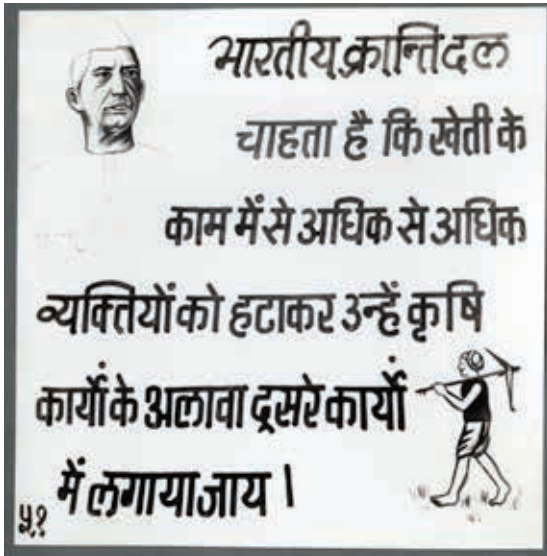 भारतीय क्रान्ति दल
चाहता है कि खेती के
काम में से अधिक से अधिक
व्यक्तियों को हटाकर उन्हें कृषि
कार्यों के अलावा दूसरे कार्यों
में लगाया जाय।
५१